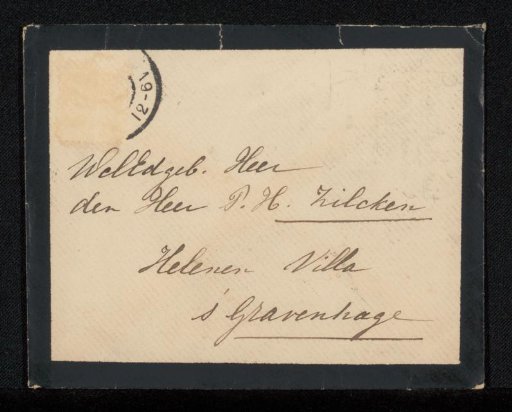 12-61
WelEdgeb. Heer
den Heer P. H. Zilcken
Helenen Villa
s' Gravenhage